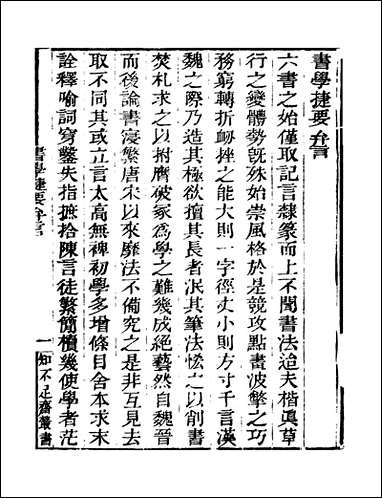 書學捷要弁言
六書之始僅取記言隸篆而上不聞書法迨夫楷眞草
行之變體勢旣殊始崇風格於是競攻點畫波撆之巧
務窮轉折衂挫之能大則一字徑丈小則方寸千言漢
魏之際乃造其極欲擅其長者泯其筆法恡之以削書
焚札求之以拊膺破冢爲學之難幾成絶藝然自魏晉
而後論書寖繁唐宋以來靡法不備究之是非互見去
取不同其或立言太高無裨初學多增條目舍本求末
詮釋喻詞穿鑿失指摭拾陳言徒繁簡牘幾使學者茫
書學捷要弁言
一
知不足齋叢書